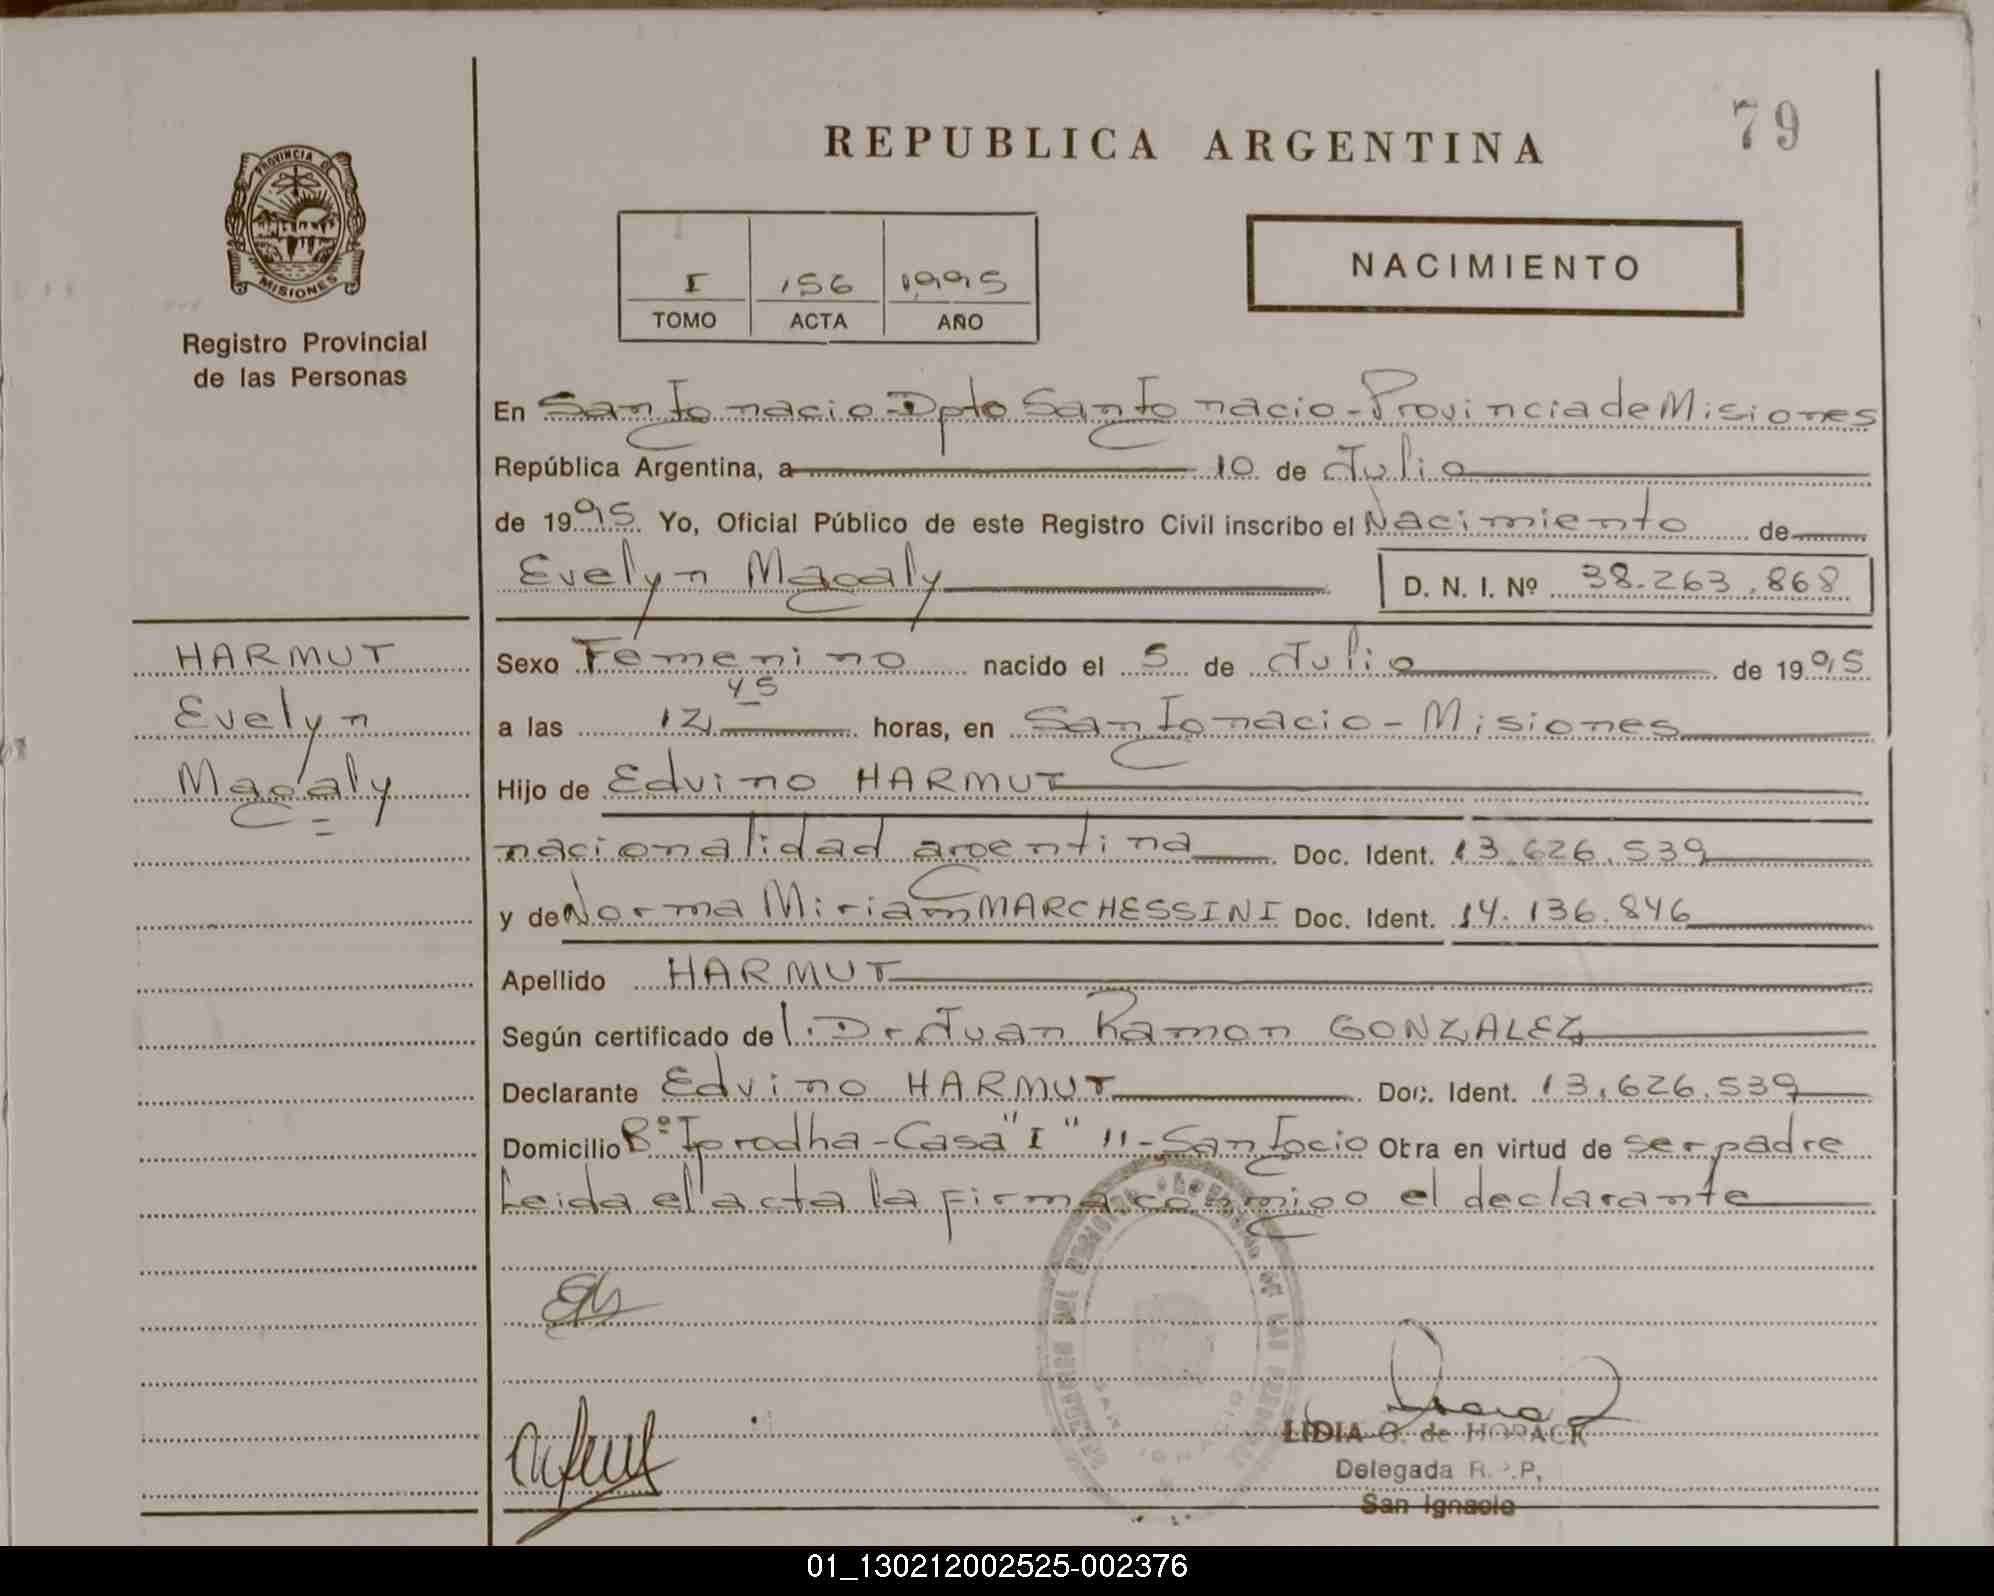 79
REPUBLICA ARGENTINA
PROVINCIA DE
MISIONES
Registro Provincial
de las Personas
I 156 1995
TOMO ACTA AÑO
NACIMIENTO
En San Ignacio-Dpto San Ignacio-Provincia de Misiones
República Argentina, a 10 de Julio
de 1995 Yo, Oficial Público de este Registro Civil inscribo el Nacimiento de
Evelyn Magaly D. N. I. Nº 38.263.868
HARMUT
Evelyn
Magaly
Sexo Femenino nacido el 5 de Julio de 1995
a las 12 45 horas, en San Ignacio - Misiones
Hijo de Edvino HARMUT
nacionalidad argentina Doc. Ident. 13.626.539
y de Norma Miriam MARCHESSINI Doc. Ident. 14.136.846
Apellido HARMUT
Según certificado de l. Dr Juan Ramon GONZALEZ
Declarante Edvino HARMUT Doc. Ident. 13.626.539
Domicilio Bº Iprodha-Casa "I" 11-San Igcio Obra en virtud de ser padre
Leida el acta la firma conmigo el declarante
SAN IGNACIO
LIDIA G. de HORACK
Delegada R.P.P.
San Ignacio
01_130212002525-002376